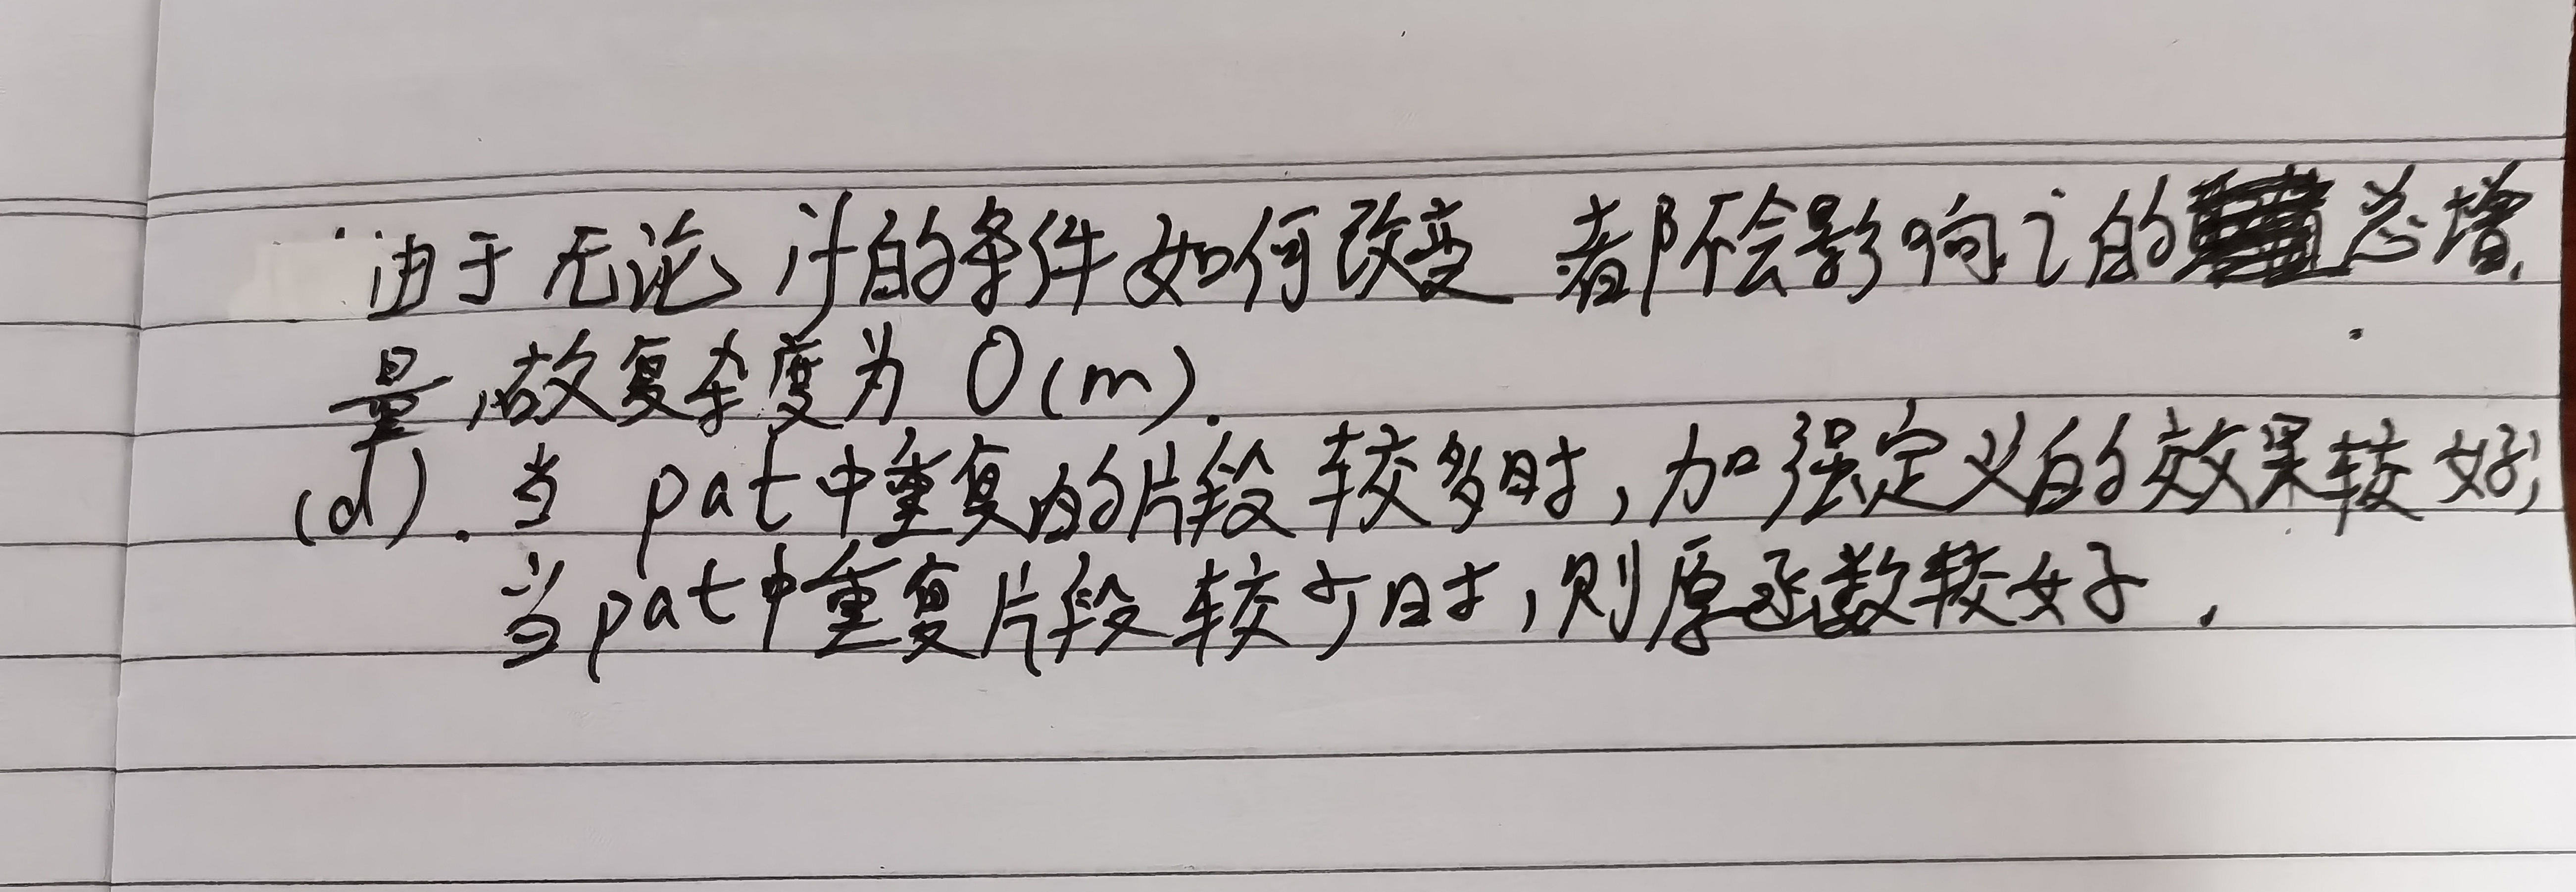 由于无论 if的条件如何改变 都不会影响i的总增
量,故复杂度为 O(m).
(d). 当 pat中重复的片段较多时,加强定义的效果较好;
当pat中重复片段较少时,则原函数较好.